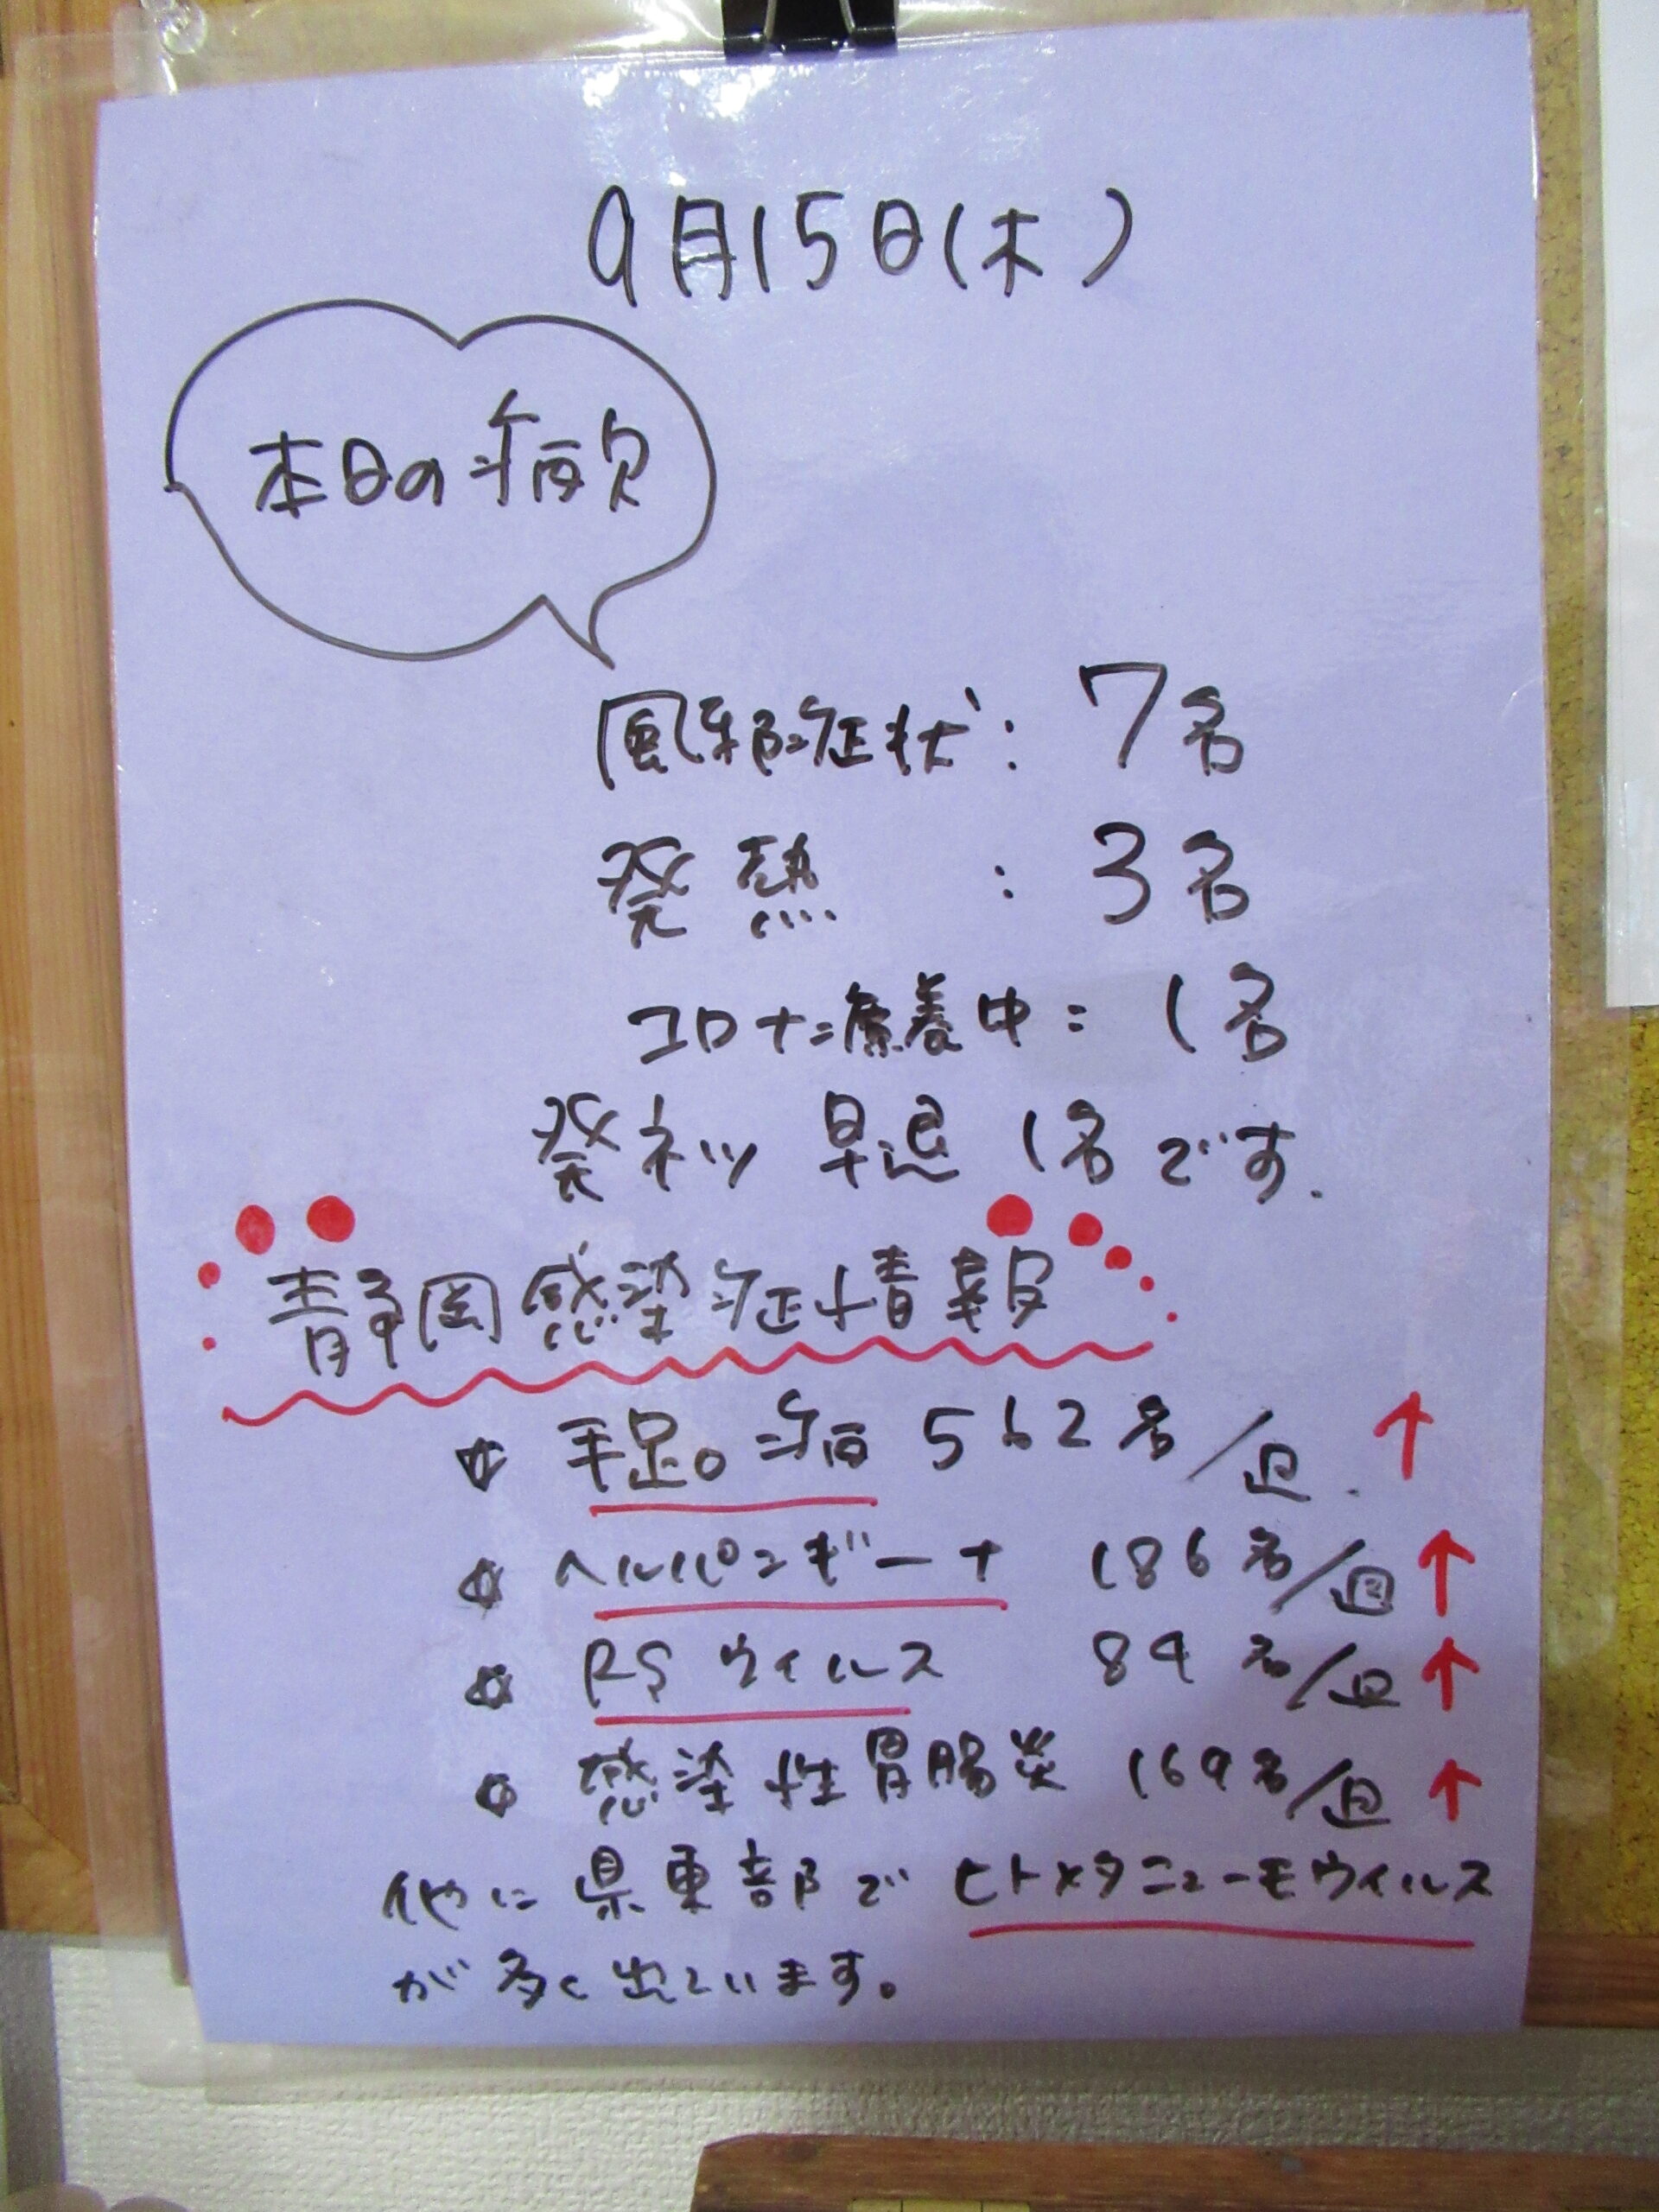 9月15日(木)
本日の病欠
風邪症状: 7名
発熱 : 3名
コロナ療養中: 1名
発ネツ 早退 1名です.
静岡感染症情報
☆ 手足口病 562名/週. ↑
☆ ヘルパンギーナ 186名/週 ↑
☆ RSウイルス 89名/週 ↑
☆ 感染性胃腸炎 169名/週 ↑
他に県東部でヒトメタニューモウイルス
が多く出ています。